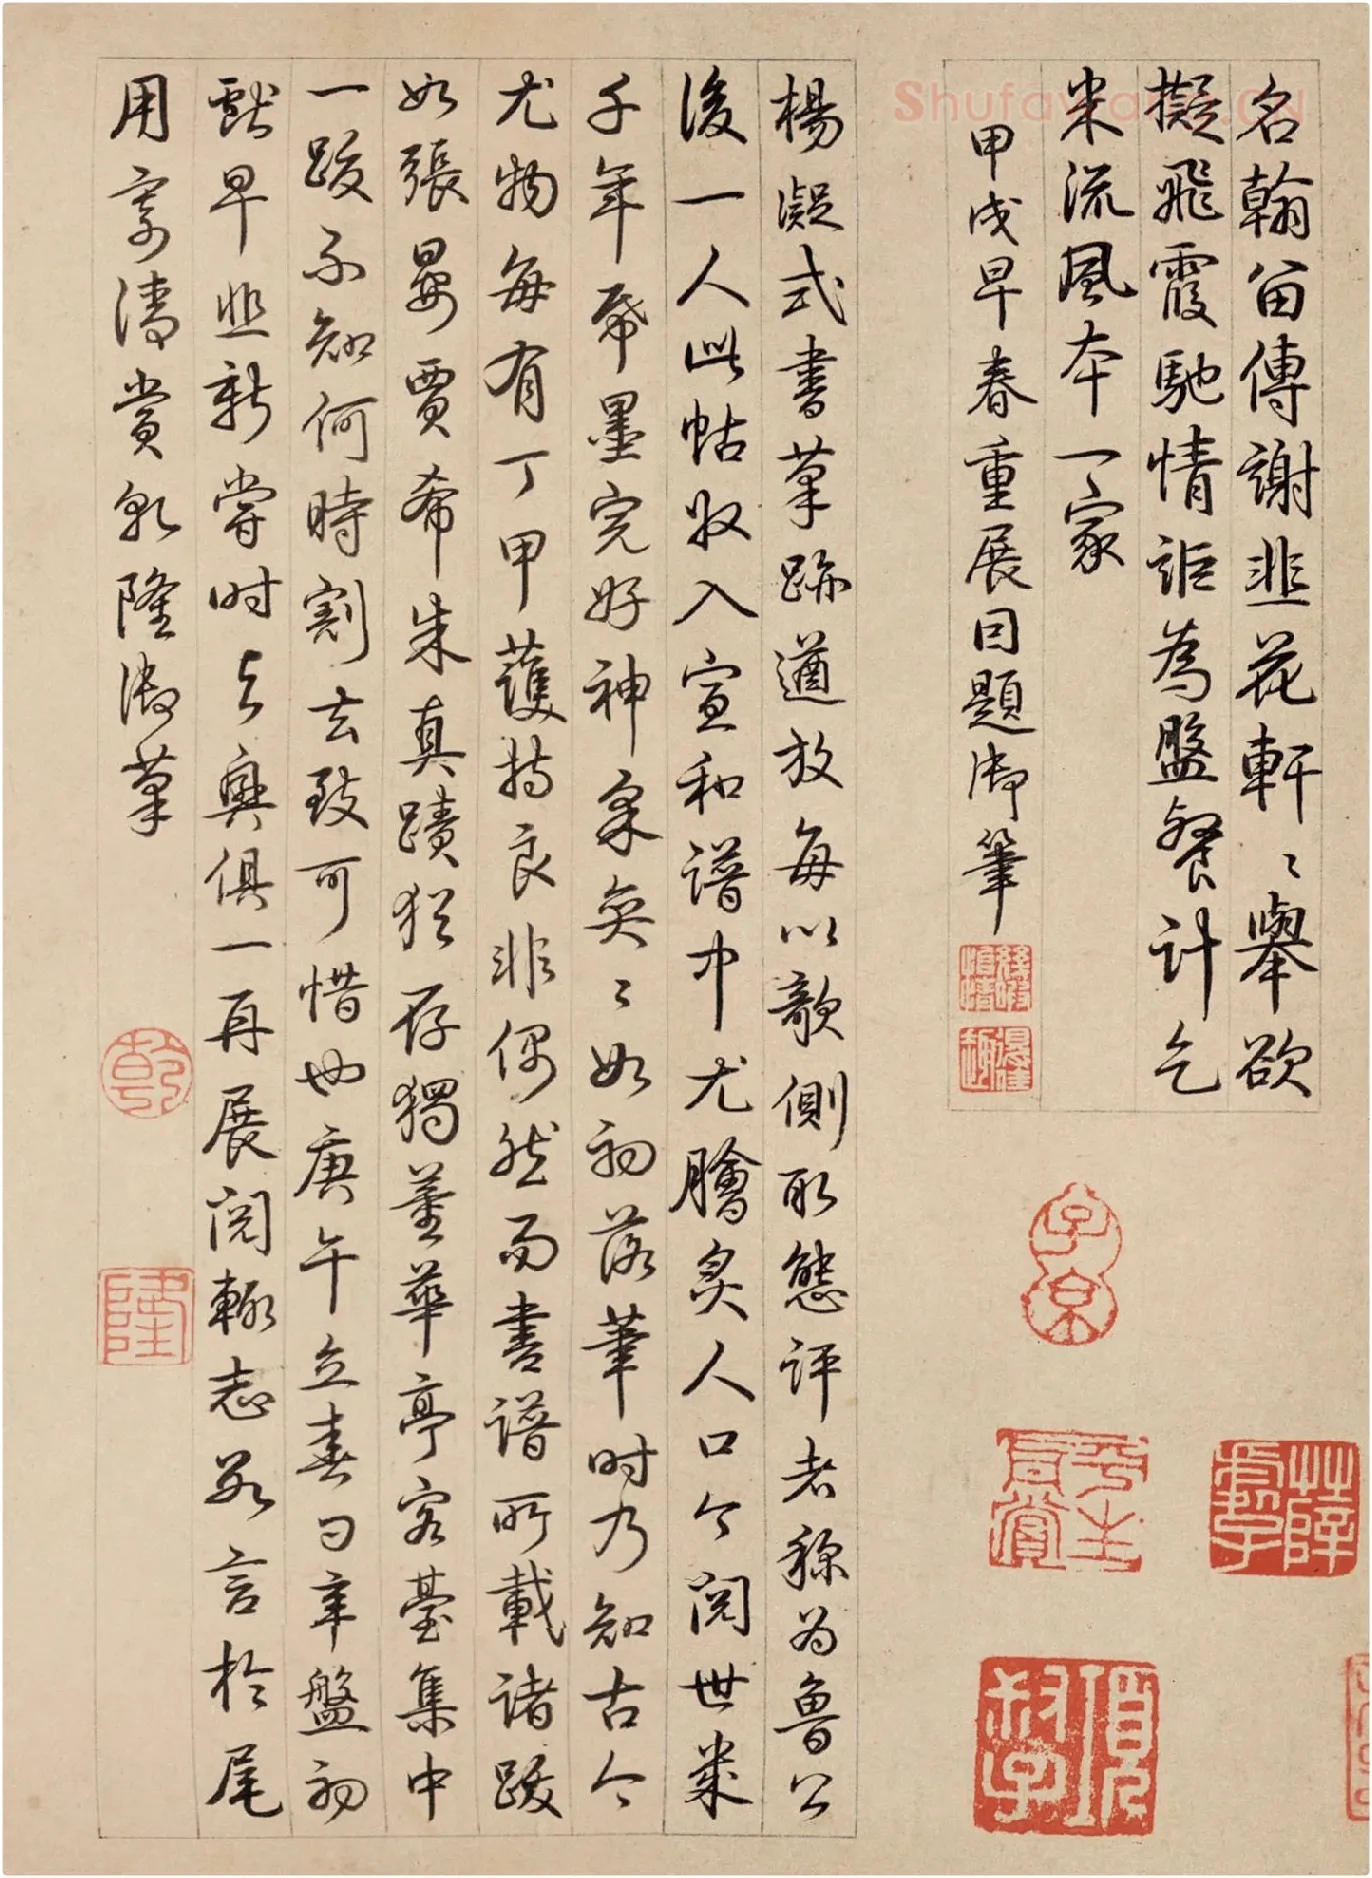 名翰留傳謝韭花軒〻舉欲
擬飛霞馳情詎為盤餐計乞
米流風本一家
甲戌早春重展因題御筆
楊凝式書筆跡遒放每以欹側取態評者稱為魯公
後一人此帖收入宣和譜中尤膾炙人口今閱世幾
千年帋墨完好神采奕〻如初落筆時乃知古今
尤物每有丁甲護持良非偶然而書譜所載諸跋
如張晏賈希朱真蹟猶存獨董華亭容臺集中
一跋不知何時割去致可惜也庚午立春日辛盤初
獻早韭新嘗时與興俱一再展閱輒志數言於尾
用寄清賞乾隆御筆
乾
隆
子京
Shufawang.CN